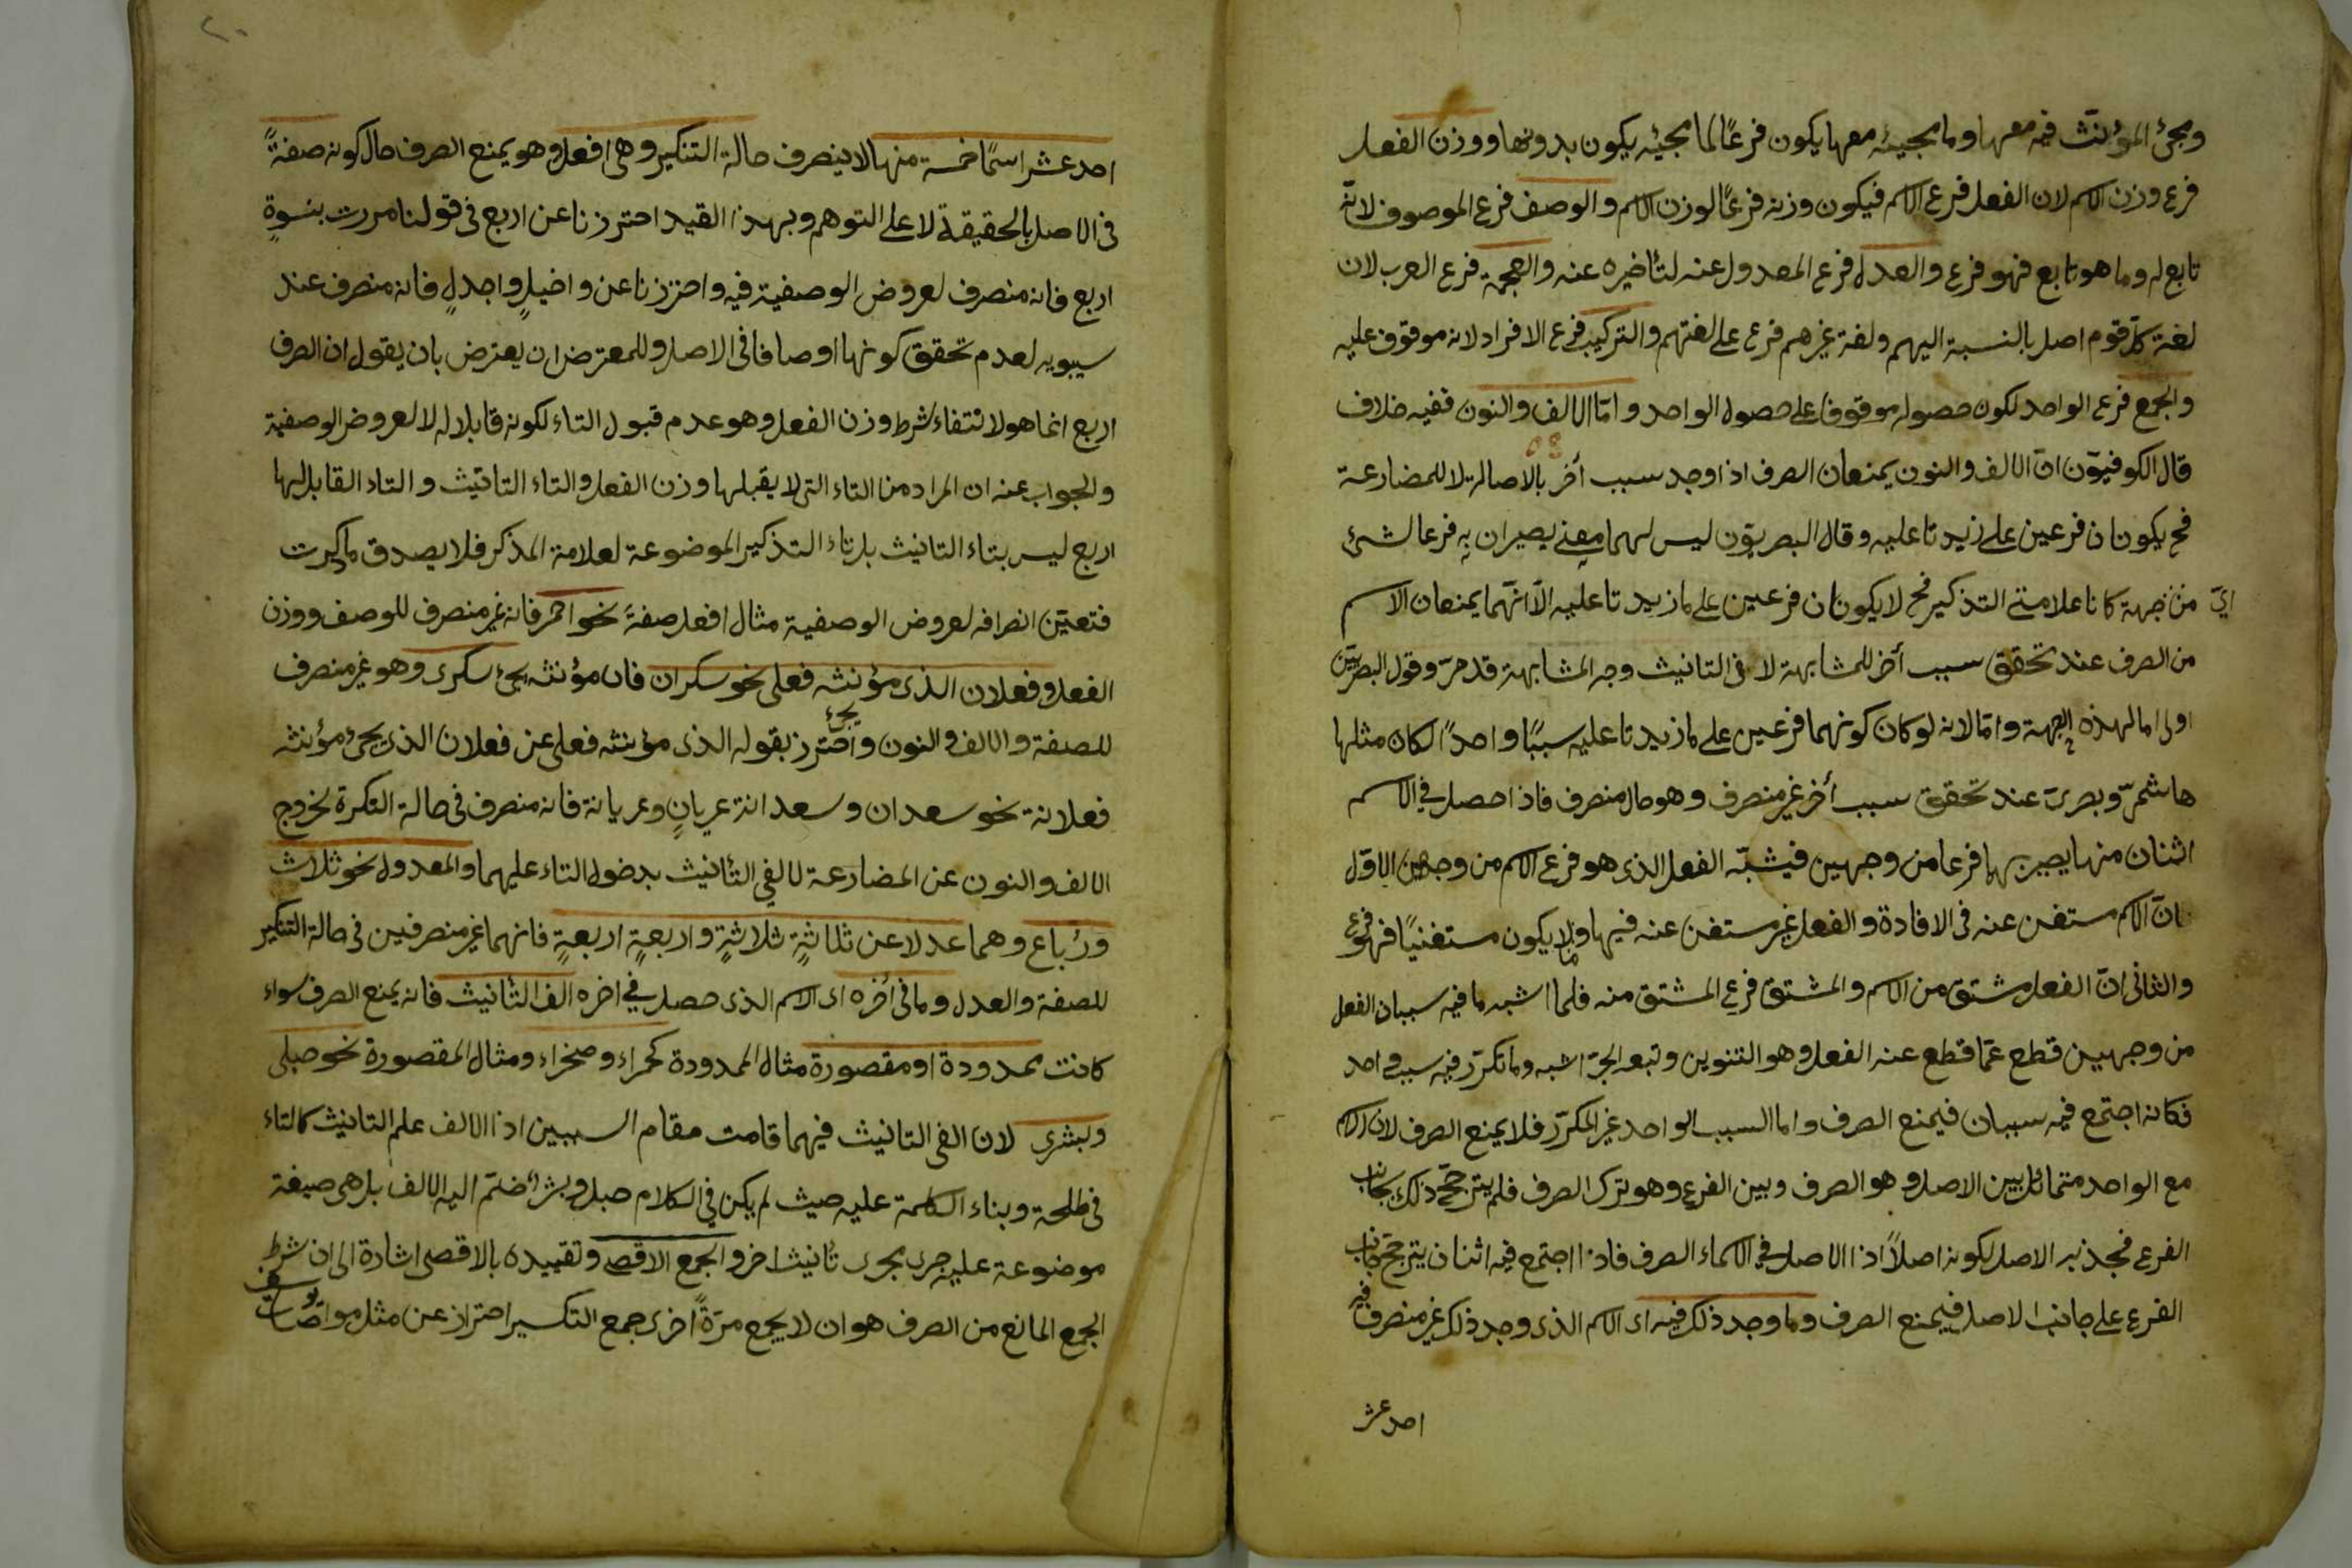 ومجئ المؤنث فيه معها وما مجيئه معها يكون فرعًا لما مجيئه يكون بدونها ووزن الفعل
فرع وزن الاسم لان الفعل فرع الاسم فيكون وزنه فرعًا لوزن الاسم والوصف فرع الموصوف لانّه
تابع له وما هو تابع فهو فرع والعدل فرع المعدول عنه لتأخيره عنه والعجمة فرع العرب لان
لغة كلّ قوم اصل بالنسبة اليهم ولغة غيرهم فرع على لغتهم والتركيب فرع الافراد لانه موقوف عليه
والجمع فرع الواحد لكون حصوله موقوفا على حصول الواحد وامّا الالف والنون ففيه خلاف
قال الكوفيوّن انّ الالف والنون يمنعان الصرف اذا وجد سبب أخر بالاصالة لا للمضارعة
فح يكونان فرعين على زيدتا عليه وقال البصريوّن ليس لهما معنى يصيران به فرعا لشئ
ايّ من جهة كانا علامتي التذكير فح لا يكونان فرعين على ما زيدتا عليه الّا انّهما يمنعان الاسم
من الصرف عند تحقق سبب أخر للمشابهة لالفى التانيث وجه المشابهة قد مرّ وقول البصريّين
اولى اما لهذه الجهة وامّا لانه لو كان كونهما فرعين على ما زيدتا عليه سببًا واحدًا لكان مثلها
هاشميّ وبصرىّ عند تحقق سبب أخر غير منصرف وهو حال منصرف فاذا حصل فى الاسم
اثنان منها يصير بهما فرعا من وجهين فيشبّه الفعل الذى هو فرع الاسم من وجهين الاوّل
انّ الاسم مستغن عنه فى الافادة والفعل غير مستغن عنه فيها وما لا يكون مستغنيًا فهو فرع
والثانى انّ الفعل مشتق من الاسم والمشتق فرع المشتق منه فلما اشبه ما فيه سببان الفعل
من وجهين قطع عمّا قطع عنه الفعل وهو التنوين وتبعه الجرّ اشبه وما تكرّر فيه سبب واحد
فكانه اجتمع فيه سببان فيمنع الصرف واما السبب الواحد غير المكرّر فلا يمنع الصرف لان الاسم
مع الواحد متماثل بين الاصل وهو الصرف وبين الفرع وهو ترك الصرف فلم يترجحّ ذلك بجانب
الفرع فجذبه الاصل لكونه اصلاً اذا الاصل فى الاسماء الصرف فاذا اجتمع فيه اثنان يترجحّ جانب
الفرع على جانب الاصل فيمنع الصرف وما وجد ذلك فيه اى الاسم الذى وجد ذلك فيه غير منصرف
احد عشر
احد عشر اسمًا خمسة منها لا ينصرف حالة التنكير وهى افعل وهو يمنع الصرف حال كونه صفةً
فى الاصل بالحقيقة لا على التوهم وبهذا القيد احترزنا عن اربع فى قولنا مررت بنسوةٍ
اربع فانه منصرف لعروض الوصفية فيه واحترزنا عن واخيلٍ واجدلٍ فانه منصرف عند
سيبويه لعدم تحقق كونها اوصافا فى الاصل وللمعترض ان يعترض بان يقول ان الصرف
اربع انما هو لانتفاء شرط وزن الفعل وهو عدم قبول التاء لكونه قابلا له لا لعروض الوصفية
والجواب عنه ان المراد من التاء التى لا يقبلها وزن الفعل والتاء التانيث والتاء القابل لها
اربع ليس بتاء التانيث بل تاء التذكير الموضوعة لعلامة المذكر فلا يصدق ما ذكرت
فتعيّن انصرافه لعروض الوصفية مثال افعل صفةً نحو احمر فانه غير منصرف للوصف ووزن
الفعل وفعلان الذى مؤنثه فعلى نحو سكران فان مؤنثه يجئ سكرى وهو غير منصرف
للصفة والالف والنون واحترز بقوله الذى يجئ مؤنثه فعلى عن فعلان الذى يجئ مؤنثه
فعلانة نحو سعدان وسعدانة عريانٍ وعريانة فانه منصرف فى حالة النكرة لخروج
الالف والنون عن المضارعة لالفى التأنيث بدخول التاء عليهما والمعدول نحو ثلاث
ورُباع وهما عدلا عن ثلاثةٍ ثلاثةٍ واربعةٍ اربعةٍ فانهما غير منصرفين فى حالة التنكير
للصفة والعدل وما فى أخره اى الاسم الذى حصل فى اخره الف التأنيث فانه يمنع الصرف سواء
كانت ممدودة او مقصورة مثال الممدودة كحمراء وصخراء ومثال المقصورة نحو حبلى
وبشرى لان الفى التانيث فيهما قامت مقام السببين اذا الالف علم التانيث كالتاء
فى طلحة وبناء الكلمة عليه حيث لم يكن فى الكلام حبل وبشر ضمّ اليه الالف بل هى صيغة
موضوعة عليه جرى مجرى تأنيث اخر والجمع الاقصى وتقييده بالاقصى اشارة الى ان شرط
الجمع المانع من الصرف هو ان لا يجمع مرّةً اخرى جمع التكسير احتراز عن مثل